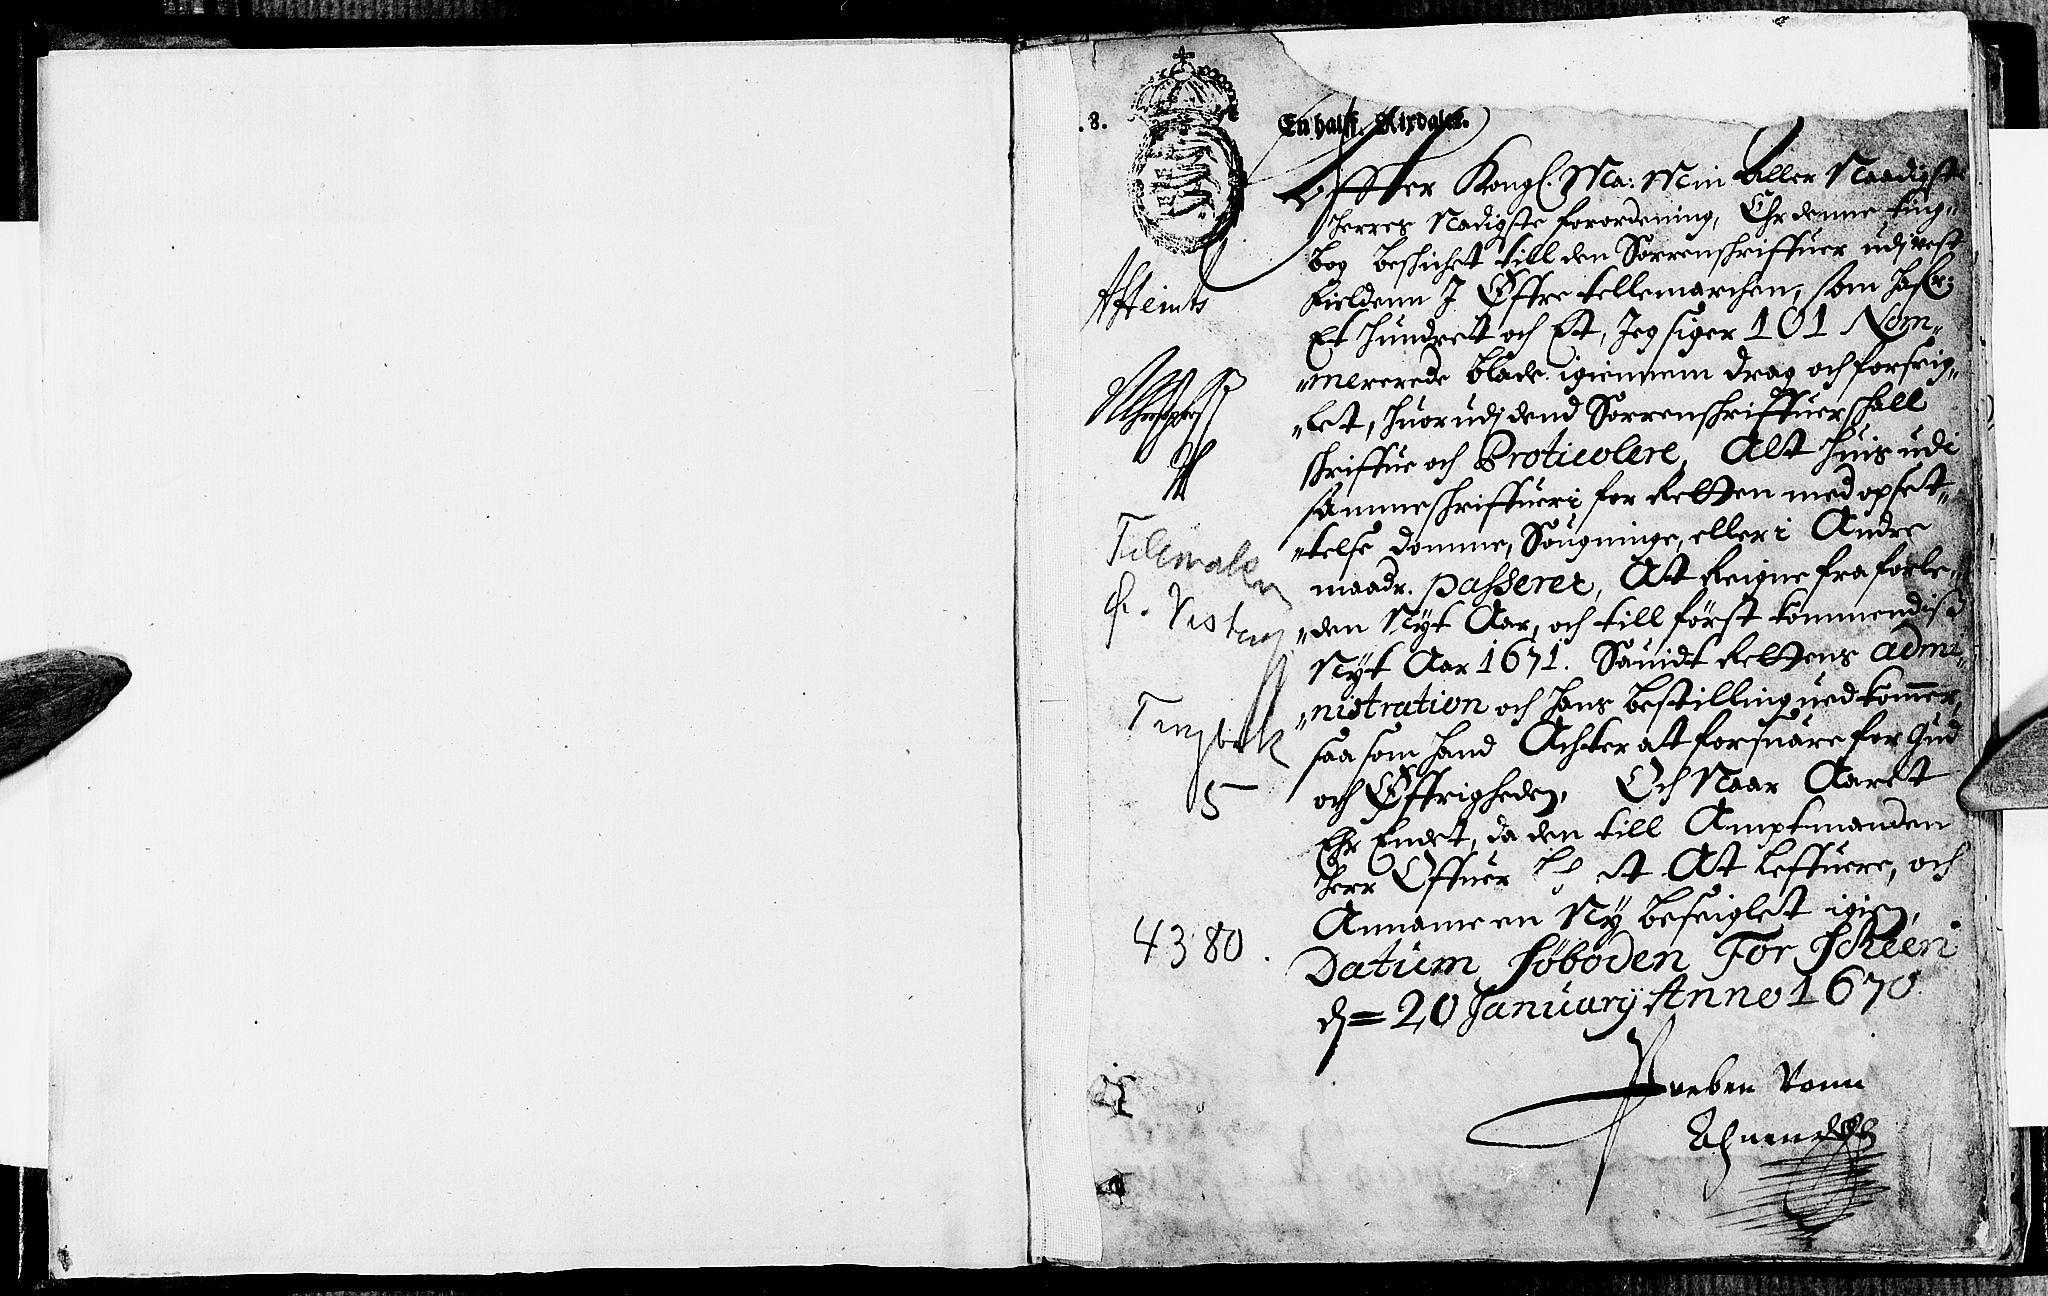 .8.
En halff. Rixdaler.
Effter Kongl. Ma: Min Aller Naadigste
Herres Nadigste forordening, Ehr denne ting„
bog beskichet till den Sorrenschriffuer udj vest
fieldenn J Øftre tellemarchen, som hafr:
Et hundrett och Et, Jeg siger 101 Nom„
„mererede blade igiennem drag och forseig„
„let, huorudj dend Sorrenschriffuer shall
schriffue och Proticolere, Alt huis udi
samme schriffueri for Retten med opset„
„telse domme, Sougninge, eller i Andre
maadr. passerer, At Reigne fra forle„
„den Nyt Aar, och till først kommendiss
Nyt Aar 1671. Sauidt Rettens admi„
„nistration och hans bestilling ued kommer,
saa som hand Achter att forsuare for Gud
och Øffrigheden, Och Naar Aaret
Ehr Endet, da den till Amptmanden
Herr Offuer At leffuere, och
Anname en Ny beseiglet igien,
Datum Søboden For Scheen
dj = 20 January Anno 1670
Preben Vonn
Ahnen
Attents
Tilemaken
Tingbok
5
4380.